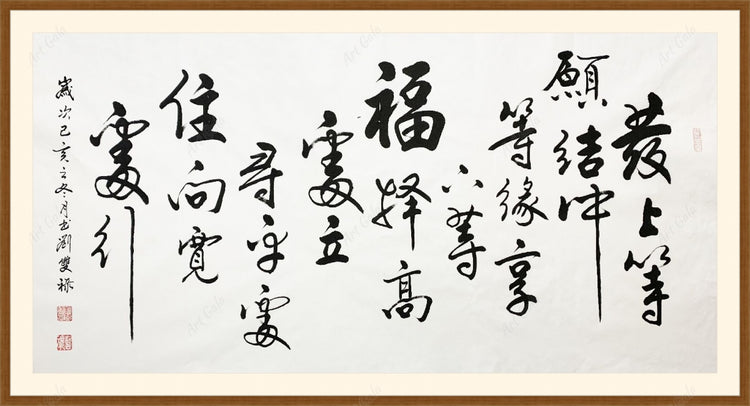 發上等
願结中
等緣享
下等
福择高
處立
尋平處
住向寬
處行
歲次己亥之冬月书劉雙禄
Art Gala